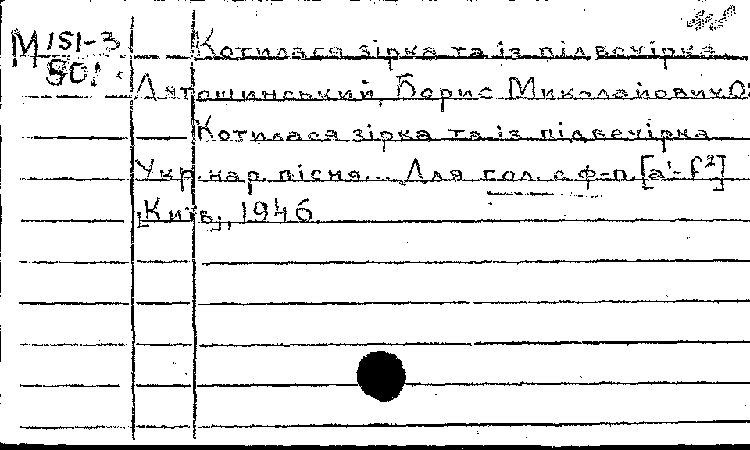 М 151-3 Котилася зірка та із підвечірка
801
Лятошинський, Борис Миколайович
Котилася зірка та із підвечірка
Укр. нар. пісня... Для гол. с ф-п. [a'- f²]
[Київ], 1946.